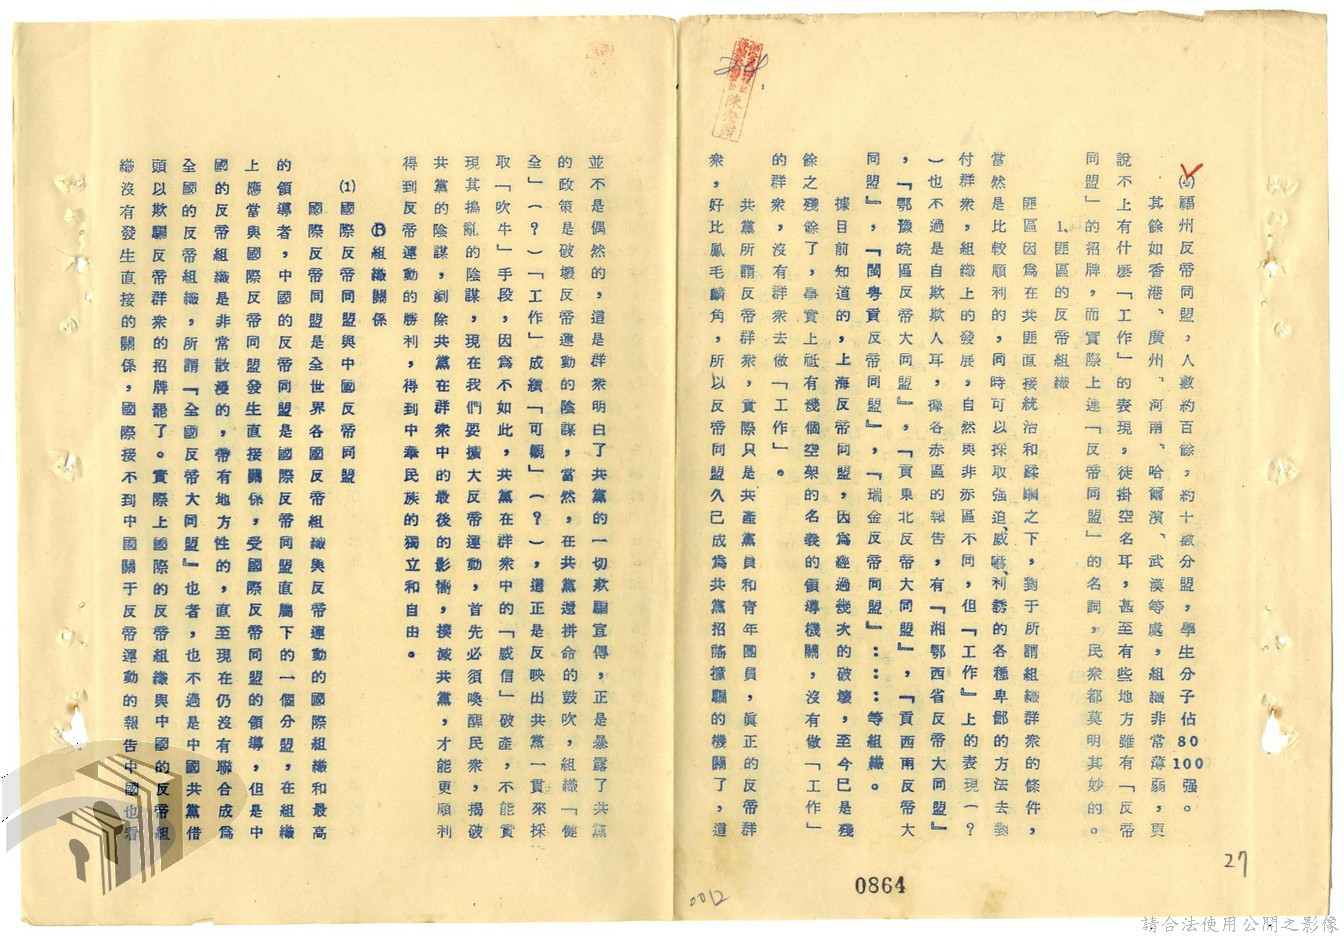 ⑷福州反帝同盟，人數約百餘，約十數分盟，學生分子佔80/100强。
其餘如香港、廣州、河南、哈爾濱、武漢等處，組織非常薄弱，更
說不上有什麽「工作」的表現，徒掛空名耳，甚至有些地方雖有「反帝
同盟」的招牌，而實際上連「反帝同盟」的名詞，民衆都莫明其妙的。
1、匪區的反帝組織
匪區因爲在共匪直接統治和蹂躪之下，對于所謂組織群衆的條件，
當然是比較順利的，同時可以採取强迫、威嚇、利誘的各種卑鄙的方法去對
付群衆，組織上的發展，自然與非赤區不同，但『工作』上的表現（？
）也不過是自欺欺人耳，據各赤區的報告，有『湘鄂西省反帝大同盟』
，『鄂豫皖區反帝大同盟』，『貢東北反帝大同盟』，『貢西南反帝大
同盟』，『閩粤貢反帝同盟』，『瑞金反帝同盟』：：：等組織。
據目前知道的，上海反帝同盟，因爲經過幾次的破壞，至今已是殘
餘之殘餘了，事實上祗有幾個空架的名義的領導機關，沒有做「工作」
的群衆，沒有群衆去做「工作」。
共黨所謂反帝群衆，實際只是共產黨員和青年團員，眞正的反帝群
衆，好比鳳毛麟角，所以反帝同盟久已成爲共黨招謠撞騙的機關了，這
並不是偶然的，這是群衆明白了共黨的一切欺騙宣傳，正是暴露了共黨
的政策是破壞反帝運動的陰謀，當然，在共黨還拼命的鼓吹，組織「健
全」（？）「工作」成績「可觀」（？），道正是反映出共黨一貫來採
取「吹牛」手段，因爲不如此，共黨在群衆中的「威信」破產，不能實
現其搗亂的陰謀，現在我們要擴大反帝運動，首先必須喚醒民衆，揭破
共黨的陰謀，剷除共黨在群衆中的最後的影響，撲滅共黨，才能更順利
得到反帝運動的勝利，得到中華民族的獨立和自由。
Ⓑ組織關係
⑴國際反帝同盟與中國反帝同盟
國際反帝同盟是全世界各國反帝組織與反帝運動的國際組織和最高
的領導者，中國的反帝同盟是國際反帝同盟直屬下的一個分盟，在組織
上應當與國際反帝同盟發生直接關係，受國際反帝同盟的領導，但是中
國的反帝組織是非常散漫的，帶有地方性的，直至現在仍沒有聯合成爲
全國的反帝組織，所謂『全國反帝大同盟』也者，也不過是中國共黨借
頭以欺騙反帝群衆的招牌罷了。實際上國際的反帝組織與中國的反帝組
織沒有發生直接的關係，國際接不到中國關于反帝運動的報告中國也看
27
0864
0012
請合法使用公開之影像